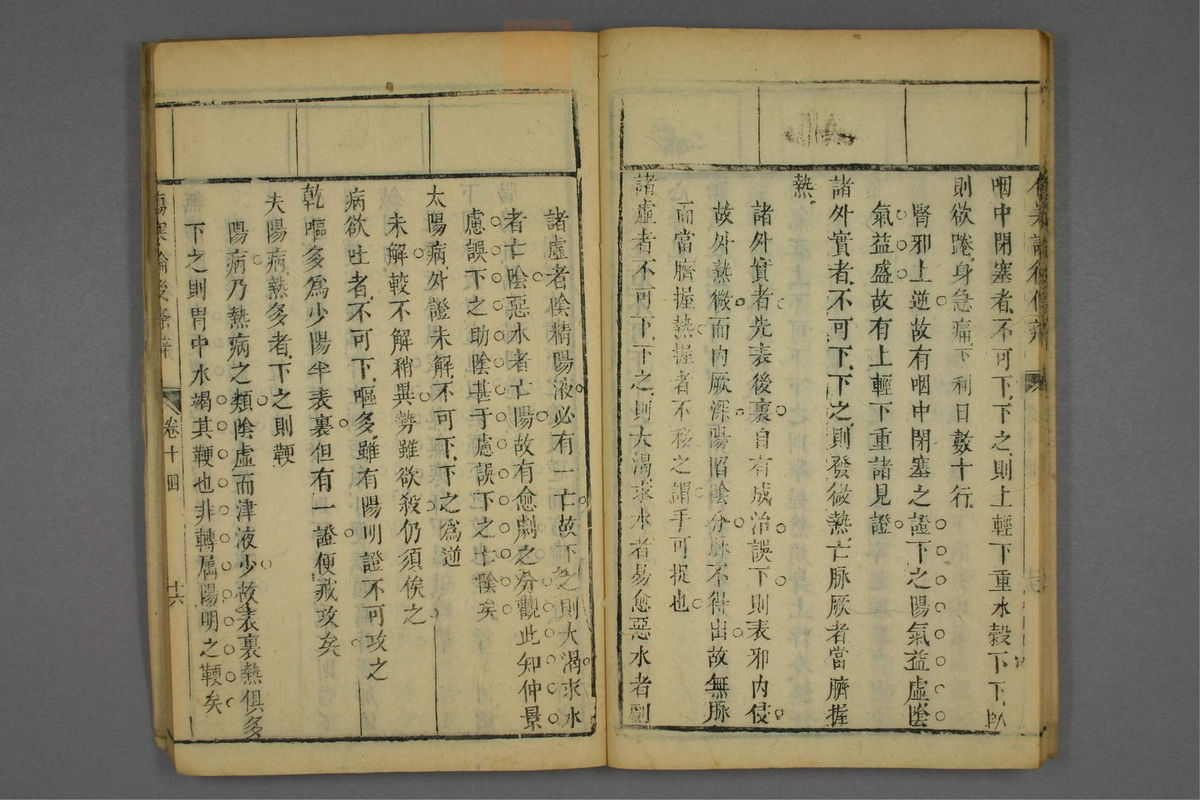 咽中閉塞者不可下下之則上輕下重水穀下下臥
則欲踡身急痛下利日數十行
腎邪上逆故有咽中閉塞之證下之陽氣益虛陰
氣益盛故有上輕下重諸見證
諸外實者不可下下之則發微熱亡脉厥者當臍握
熱
諸外實者先表後裏自有成治誤下則表邪內侵
故外熱微而內厥深陽陷陰分脉不得出故無脉
而當臍握熱握者不移之謂手可捉也
諸虛者不可下下之則大渴求水者易愈惡水者劇
諸虛者陰精陽液必有一亡故下之則大渴求水
者亡陰惡水者亡陽故有愈劇之分觀此知仲景
慮誤下之助陰甚于慮誤下之亡陰矣
太陽病外證未解不可下下之為逆
未解較不解稍異勢雖欲殺仍須俟之
病欲吐者不可下嘔多雖有陽明證不可攻之
乾嘔多為少陽半表裏但有一證便戒攻矣
夫陽病熱多者下之則鞕
陽病乃熱病之類陰虛而津液少故表裏熱俱多
下之則胃中水竭其鞕也非轉屬陽明之鞕矣
傷寒論後條辨
卷十四